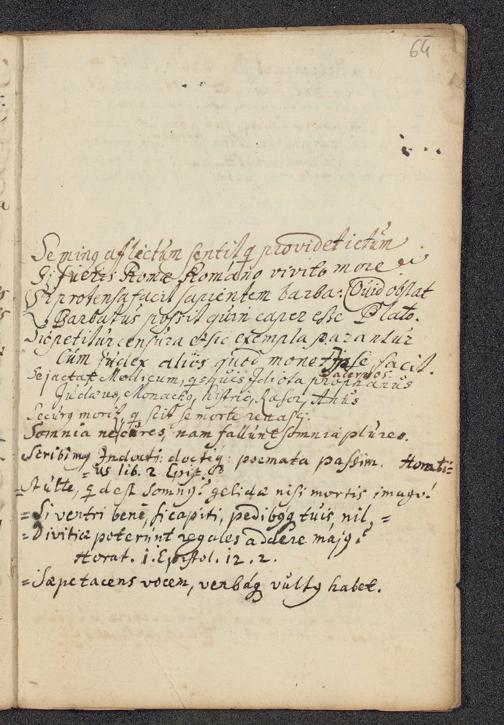 64
Se minq afflictum sentit q providet ictum
Si fueris Romæ Romano vivito more
Si protensa facit sapientem barba: Quid obstat
Barbatus possit quin caper esse Plato.
Sic petitur censura et sic exempla parantur
Cum judex alios quod monet Ipse facit.
Se jactat Medicum, quisquis Idiota prophanus
Judæus, Monachus, histrio, Rasor, Anus
Securus moritur, q scit se morte renasci.
Somnia ne cures, nam fallunt somnia plures.
Scribimq Indocti doctiq: poemata passim. Horati=
=us lib. 2 Epist.
Stulte, q̃d est somnq? gelidæ nisi mortis imago.
=Si ventri bene, si capiti, pedibqq tuis, nil =
=Divitiæ poterunt regales addere majq?
Horat. 1. Epistol. 12. 2.
=Sæpe tacens vocem, verbáq vultq habet.